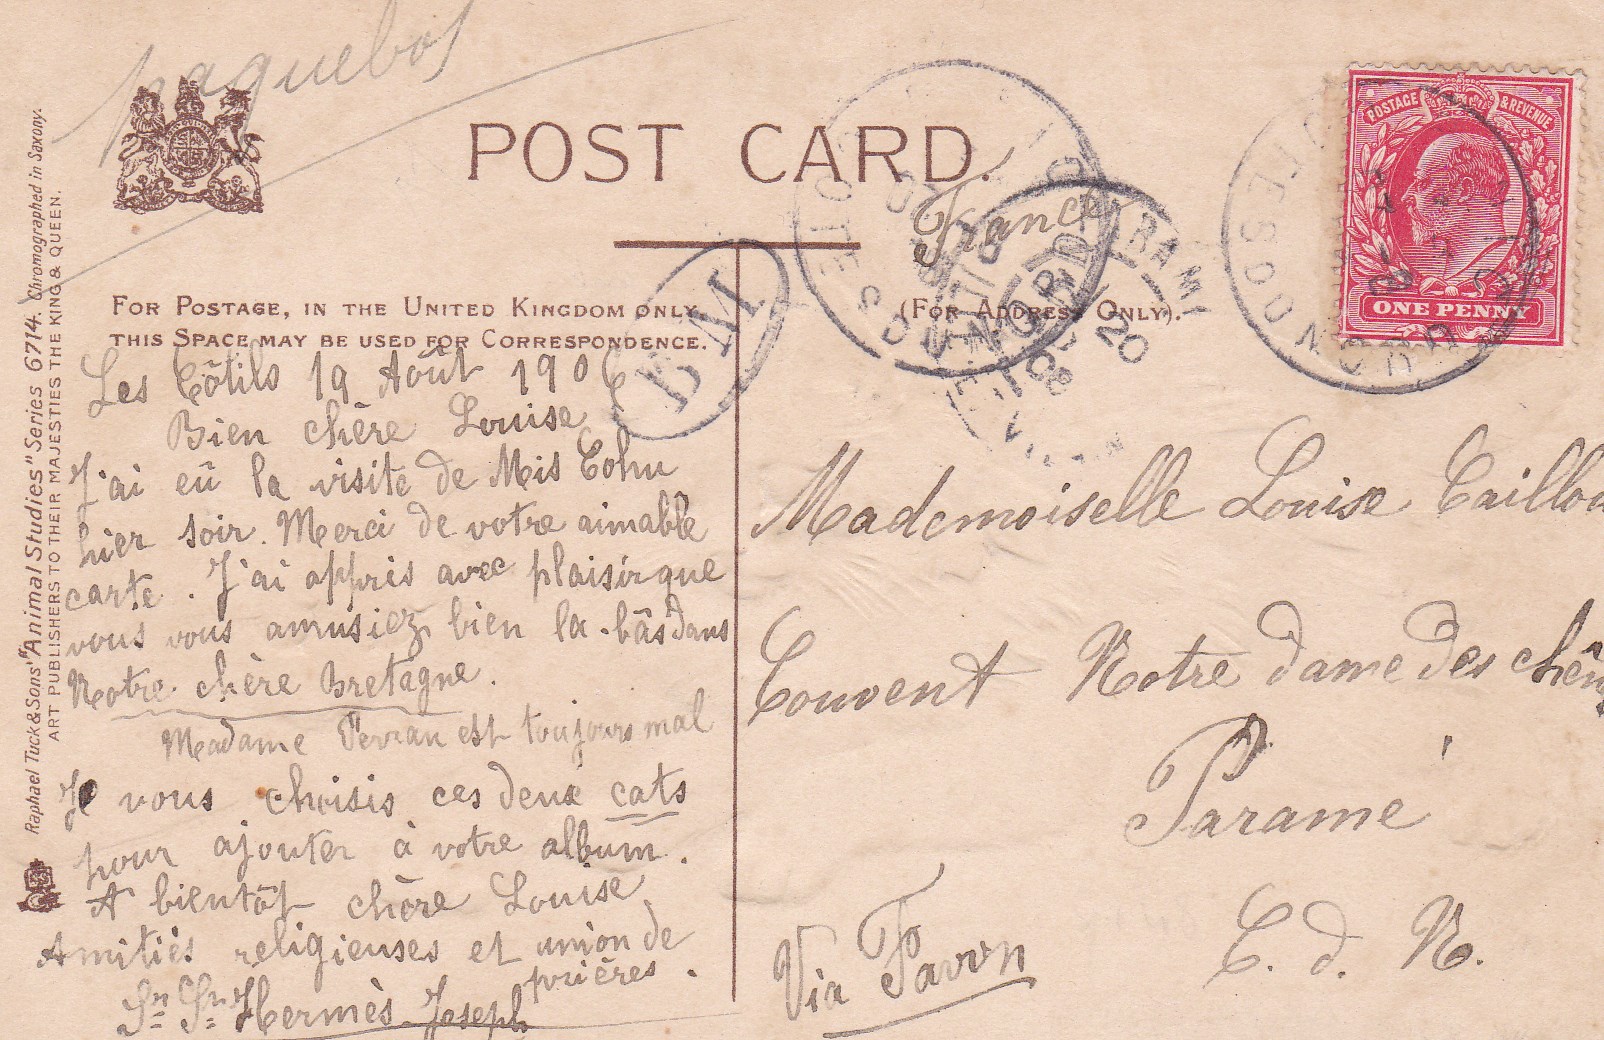 paquebot
POST CARD.
France
FOR POSTAGE, IN THE UNITED KINGDOM ONLY,
THIS SPACE MAY BE USED FOR CORRESPONDENCE.
(FOR ADDRESS ONLY).
Raphael Tuck & Sons' "Animal Studies" Series 6714. Chromographed in Saxony.
ART PUBLISHERS TO THEIR MAJESTIES THE KING & QUEEN.
POSTAGE & REVENUE
ONE PENNY
BM
Les Côtils 19 Août 1906
Bien chère Louise
J'ai eû la visite de Mis Cohu
hier soir. Merci de votre aimable
carte. J'ai appris avec plaisir que
vous vous amusiez bien la-bâs dans
Notre chère Bretagne.
Madame est toujours mal
Je vous choisis ces deux cats
pour ajouter à votre album.
A bientôt chère Louise
Amitiés religieuses et union de
prières.
Sr St Hermès Joseph
Mademoiselle Louise Caillou
Couvent Notre dame des chên
Paramé
C. d. N.
Via